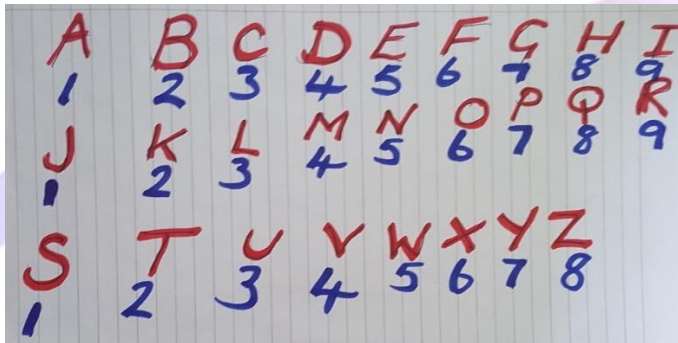 A B C D E F G H I
1 2 3 4 5 6 7 8 9
J K L M N O P Q R
1 2 3 4 5 6 7 8 9
S T U V W X Y Z
1 2 3 4 5 6 7 8